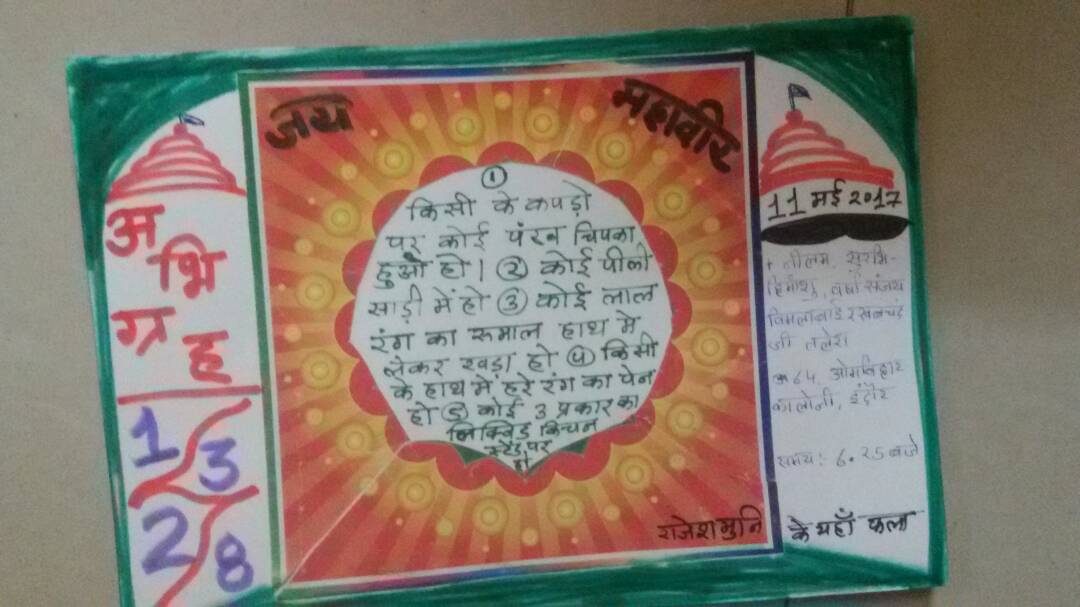 जय महावीर
अ
भि
ग्र
ह
1 3
2 8
①
किसी के कपड़ो
पर कोई पंख चिपका
हुआ हो। ② कोई पीली
साड़ी में हो ③ कोई लाल
रंग का रूमाल हाथ मे
लेकर खड़ा हो ④ किसी
के हाथ में हरे रंग का पेन
हो ⑤ कोई 3 प्रकार का
लिक्विड किचन
स्टैंड पर
हो
राजेशमुनि
11 मई 2017
नीलम, सुरभि-
हिमांशु, वर्षा संजय
विमलाबाई रखबचंद
जी तलेरा
64, ओमविहार
कालोनी, इंदौर
समय: 6.25 बजे
के यहाँ फला